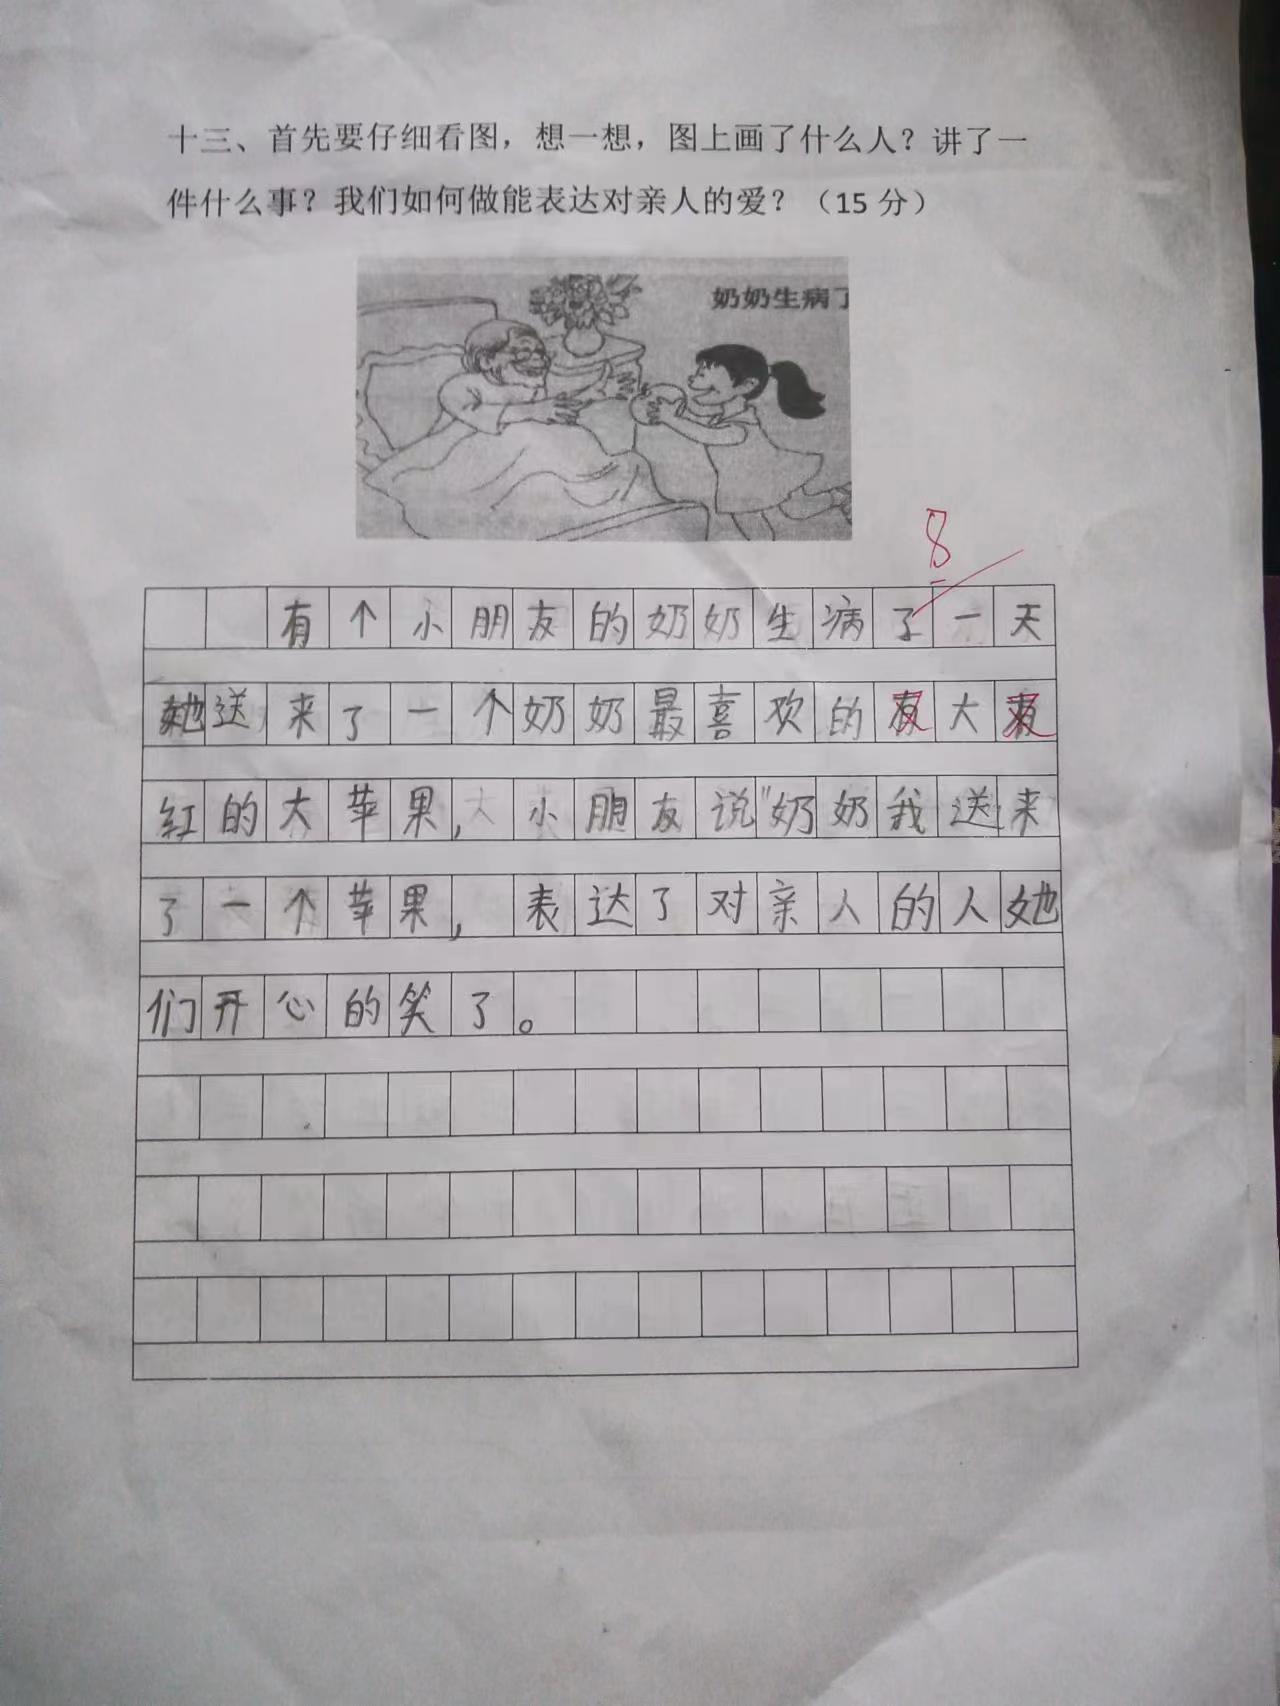 十三、首先要仔细看图，想一想，图上画了什么人？讲了一
件什么事？我们如何做能表达对亲人的爱？（15 分）
奶奶生病了
8
有个小朋友的奶奶生病了一天
她送来了一个奶奶最喜欢的大
红的大苹果,小朋友说"奶奶我送来
了一个苹果,表达了对亲人的人她
们开心的笑了。